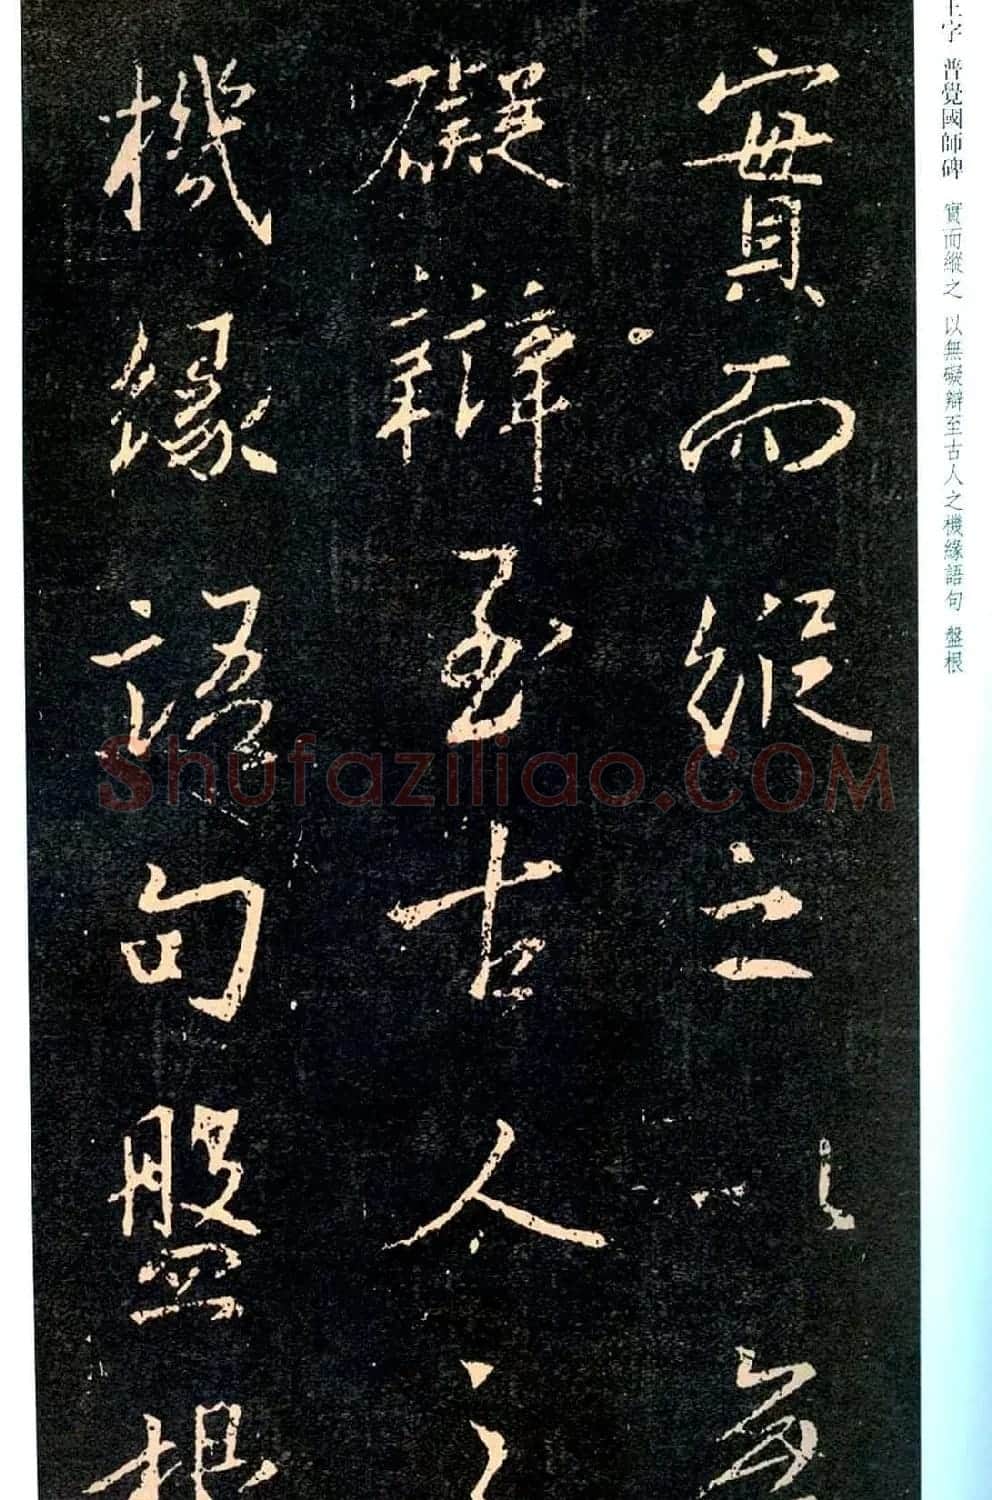 實而縱之以無
礙辯至古人之
機緣語句盤根
王字 普覺國師碑 實而縱之 以無礙辯至古人之機緣語句 盤根
Shufaziliao.COM